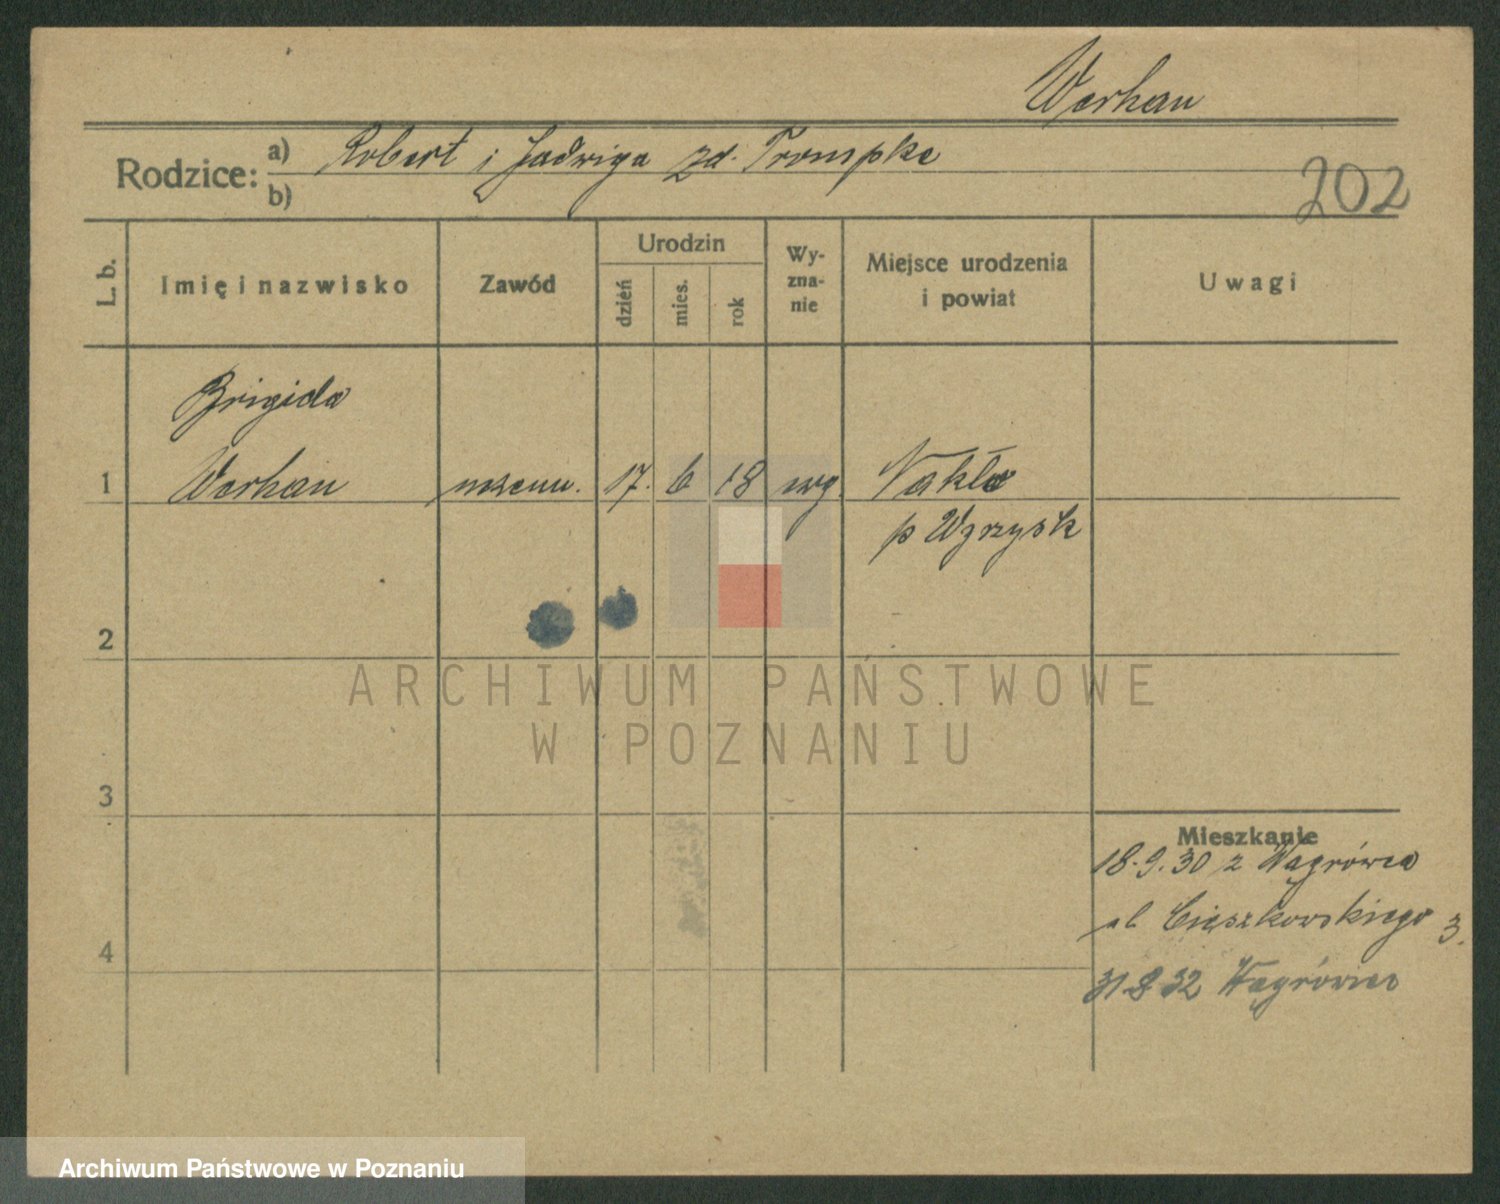 Werhan
Rodzice: a) Robert i Jadwiga zd. Trompke
b)
202
L. b.
Imię i nazwisko
Zawód
Urodzin
dzień
mies.
rok
Wy-
zna-
nie
Miejsce urodzenia
i powiat
Uwagi
Brigida
1 Werhan uczenn. 17. 6 18 ewg. Nakło
p Wyrzysk
2
ARCHIWUM PAŃSTWOWE
W POZNANIU
3
Mieszkanie
18.9.30 z Wągrówca
ul Cieszkowskiego 3.
4
31 8 32 Wągrówiec
Archiwum Państwowe w Poznaniu